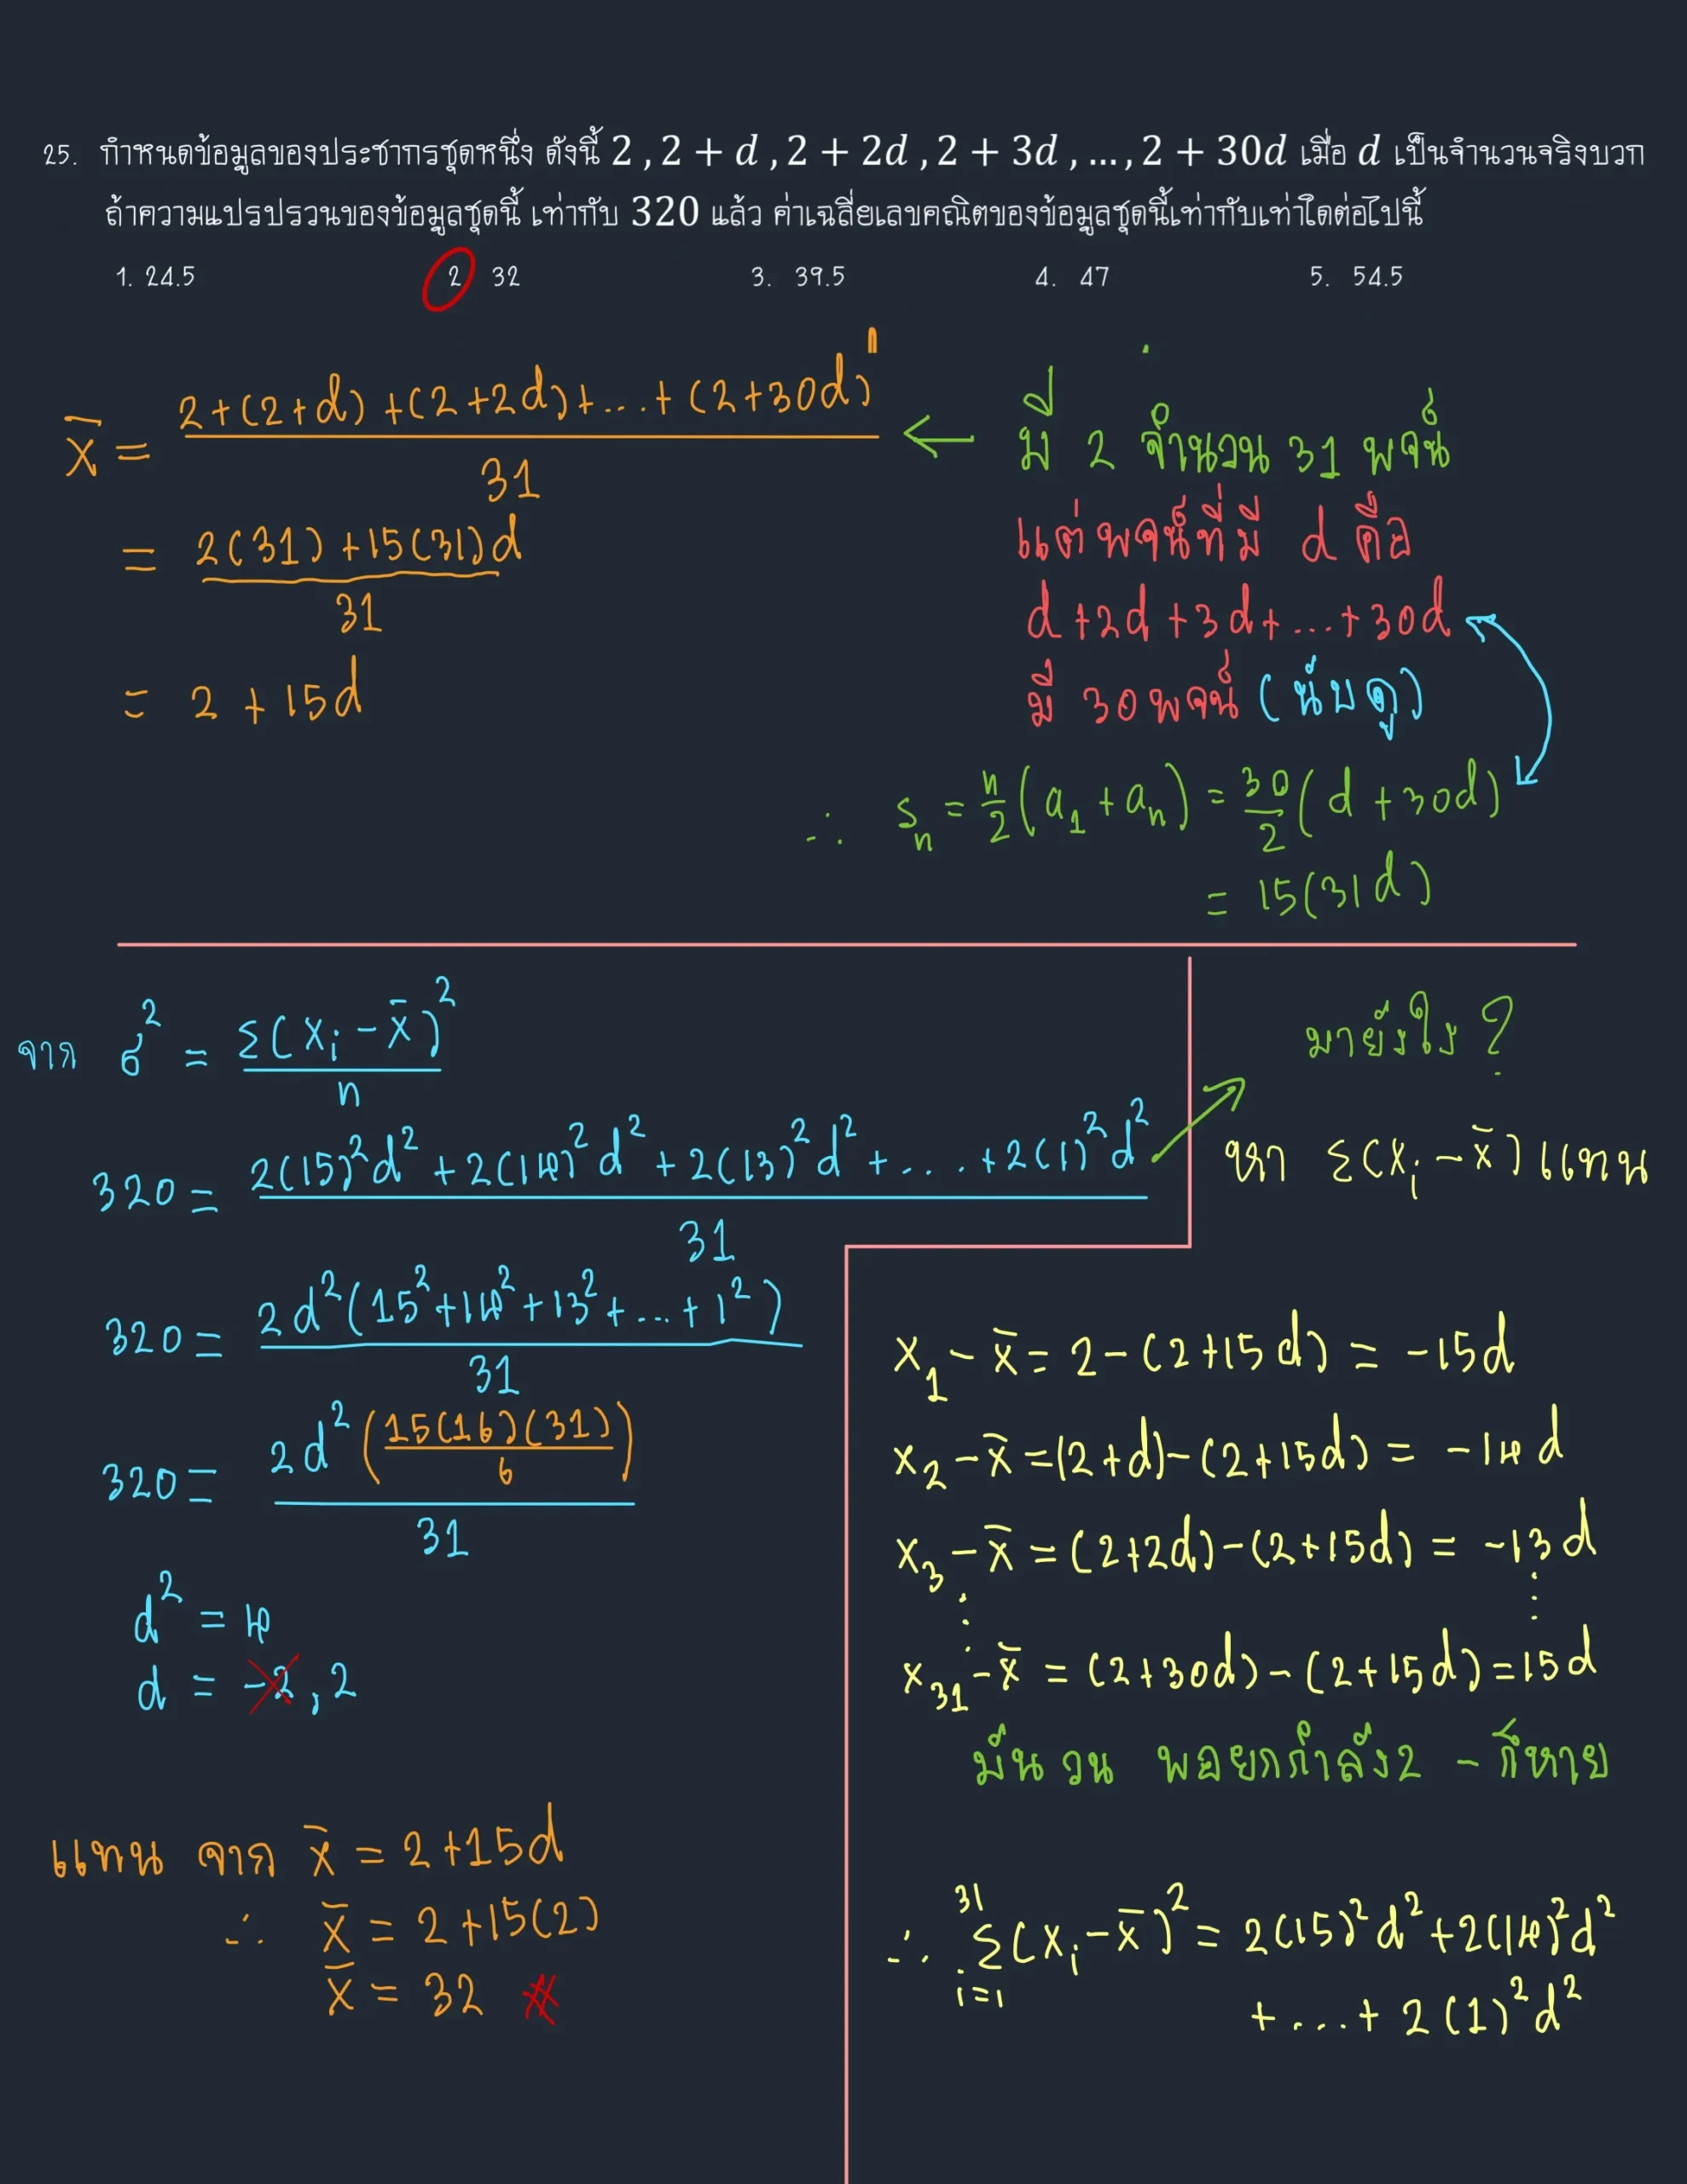 25. กำหนดข้อมูลของประชากรชุดหนึ่ง ดังนี้ 2 , 2 + d , 2 + 2d , 2 + 3d , … , 2 + 30d เมื่อ d เป็นจำนวนจริงบวก
ถ้าความแปรปรวนของข้อมูลชุดนี้ เท่ากับ 320 แล้ว ค่าเฉลี่ยเลขคณิตของข้อมูลชุดนี้เท่ากับเท่าใดต่อไปนี้
1. 24.5 2. 32 3. 39.5 4. 47 5. 54.5
x̄ = (2+(2+d)+(2+2d)+...+(2+30d))/31
= (2(31)+15(31)d)/31
= 2 + 15d
← มี 2 จำนวน 31 พจน์
แต่พจน์ที่มี d คือ
d+2d+3d+...+30d
มี 30 พจน์ (นับดู)
∴ Sₙ = n/2 (a₁ + aₙ) = 30/2 (d + 30d)
= 15(31d)
จาก σ² = Σ(xᵢ - x̄)²/n
320 = (2(15)²d² + 2(14)²d² + 2(13)²d² + .... + 2(1)²d²)/31
320 = 2d²(15²+14²+13²+...+1²)/31
320 = 2d²(15(16)(31)/6)/31
d² = 4
d = -2, 2
แทน จาก x̄ = 2+15d
∴ x̄ = 2+15(2)
x̄ = 32 #
มายังไง ?
หา Σ(xᵢ - x̄) แทน
x₁ - x̄ = 2-(2+15d) = -15d
x₂ - x̄ = (2+d)-(2+15d) = -14d
x₃ - x̄ = (2+2d)-(2+15d) = -13d
⋮ ⋮
x₃₁ - x̄ = (2+30d)-(2+15d) = 15d
มันวน พอยกกำลัง2 - ก็หาย
∴ Σᵢ₌₁³¹(xᵢ - x̄)² = 2(15)²d²+2(14)²d²
+...+ 2(1)²d²